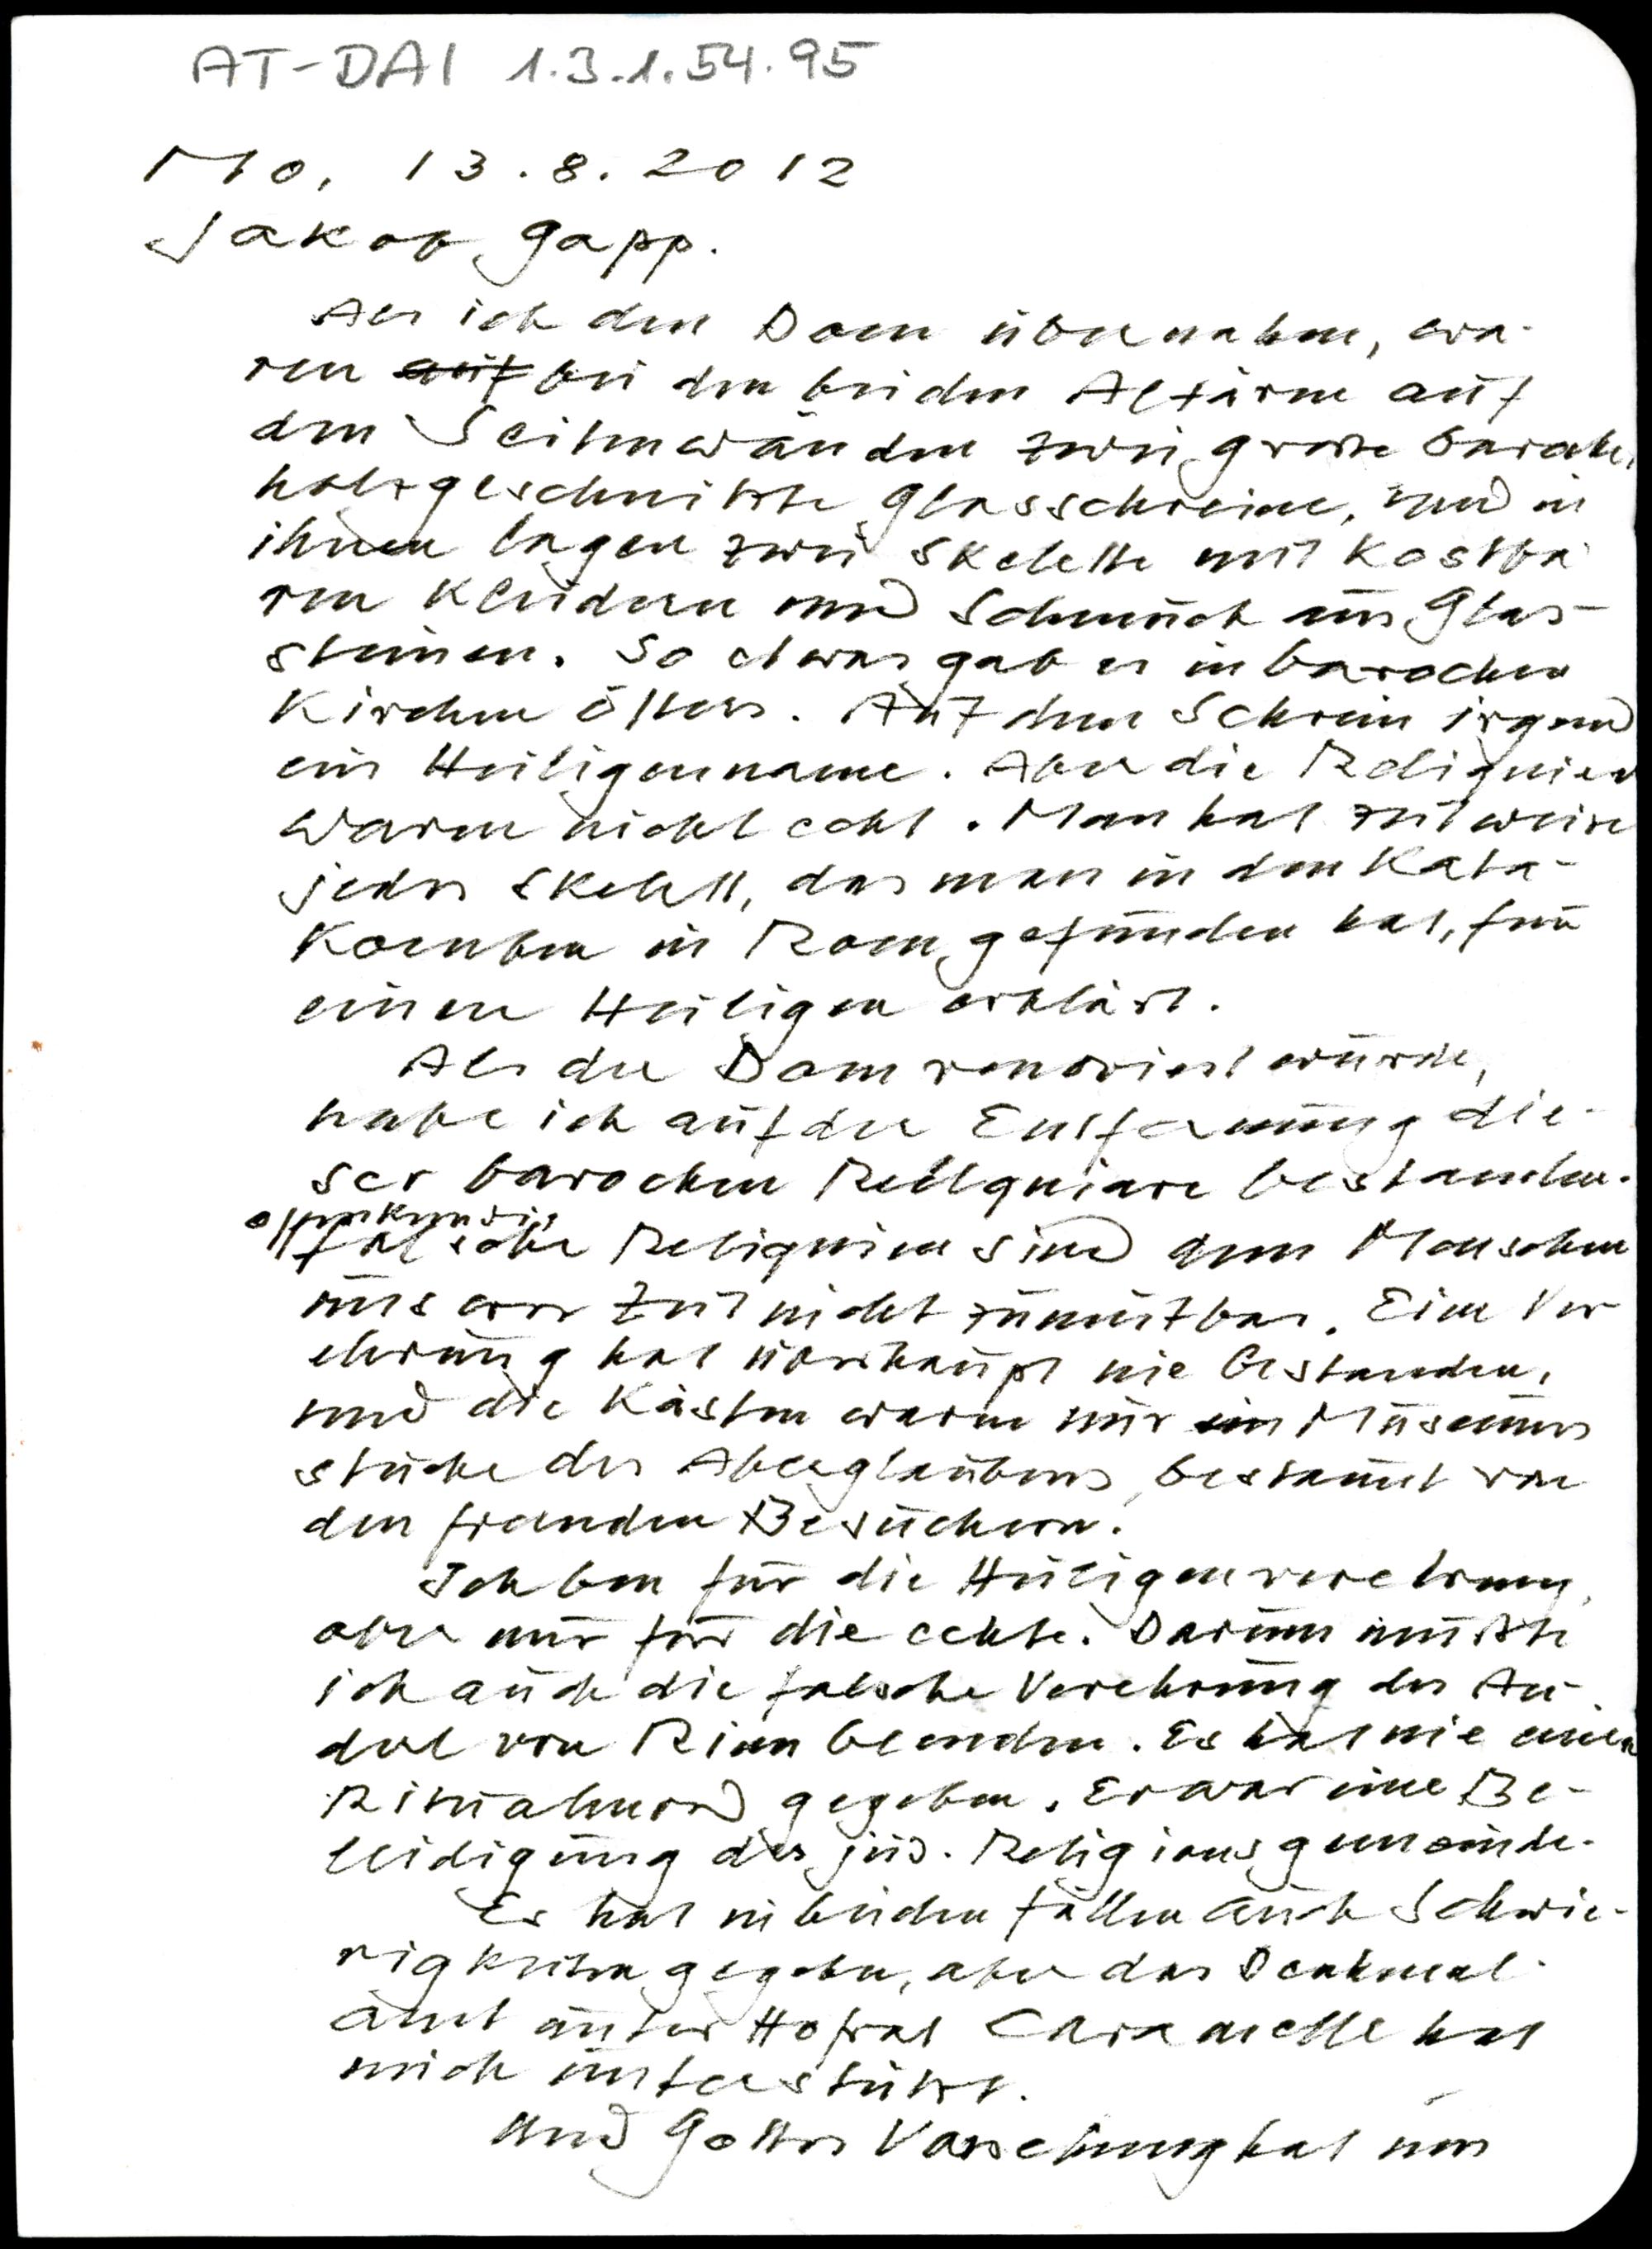 AT-DAI 1.3.1.54.95
Mo, 13.8.2012
Jakob Gapp.
Als ich den Dom übernahm, wa-
ren auf bei den beiden Altären auf
den Seitenwänden zwei große barocke,
holzgeschnitzte Glasschreine, und in
ihnen lagen zwei Skelette mit kostba-
ren Kleidern und Schmuck aus Glas-
steinen. So etwas gab es in barocken
Kirchen öfters. Auf dem Schrein irgend
ein Heiligenname. Aber die Reliquien
waren nicht echt. Man hat zeitweise
jedes Skelett, das man in den Kata-
komben in Rom gefunden hat, für
einen Heiligen erklärt.
Als der Dom renoviert wurde,
habe ich auf der Entfernung die-
ser barocken Reliquiare bestanden.
offenkundig
falsche Reliquien sind dem Menschen
unserer Zeit nicht zumutbar. Eine Ver-
ehrung hat überhaupt nie bestanden,
und die Kästen waren nur ein Museums
stücke des Aberglaubens, bestaunt von
den fremden Besuchern.
Ich bin für die Heiligenverehrung,
aber nur für die echte. Darum mußte
ich auch die falsche Verehrung des An-
derl von Rinn beenden. Es hat nie einen
Ritualmord gegeben. Er war eine Be-
leidigung der jüd. Religionsgemeinde.
Es hat in beiden Fällen auch Schwie-
rigkeiten gegeben, aber das Denkmal-
amt unter Hofrat Caramelle hat
mich unterstützt.
Und Gottes Vorsehung hat uns